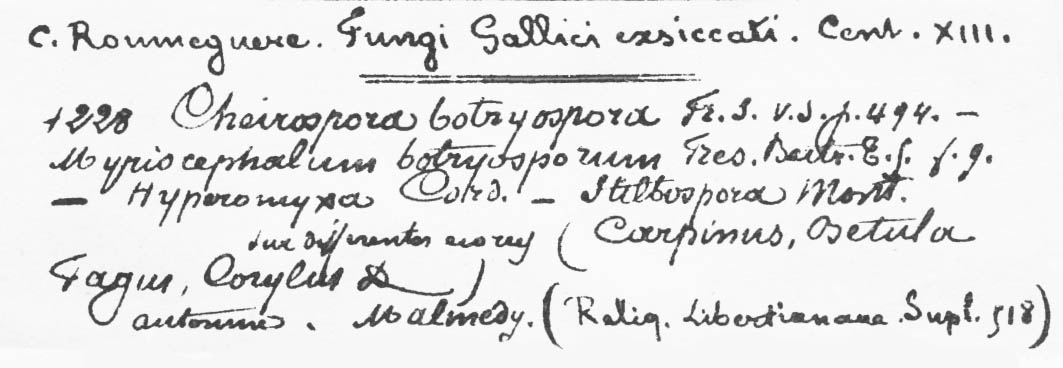 C. Roumeguere. Fungi Gallici exsiccati. Cent. XIII.
1228 Cheirospora botryospora Fr. S. v. S. p. 494. –
Myriocephalum botryosporum Fres. Beitr. E. f. f. 9.
– Hyperomyxa Cord. – Stilbospora Mont.
sur differentes ecorces ( Carpinus, Betula
Fagus, Corylus & )
automne. Malmedy. ( Reliq. Libertianae. Supl. 518 )